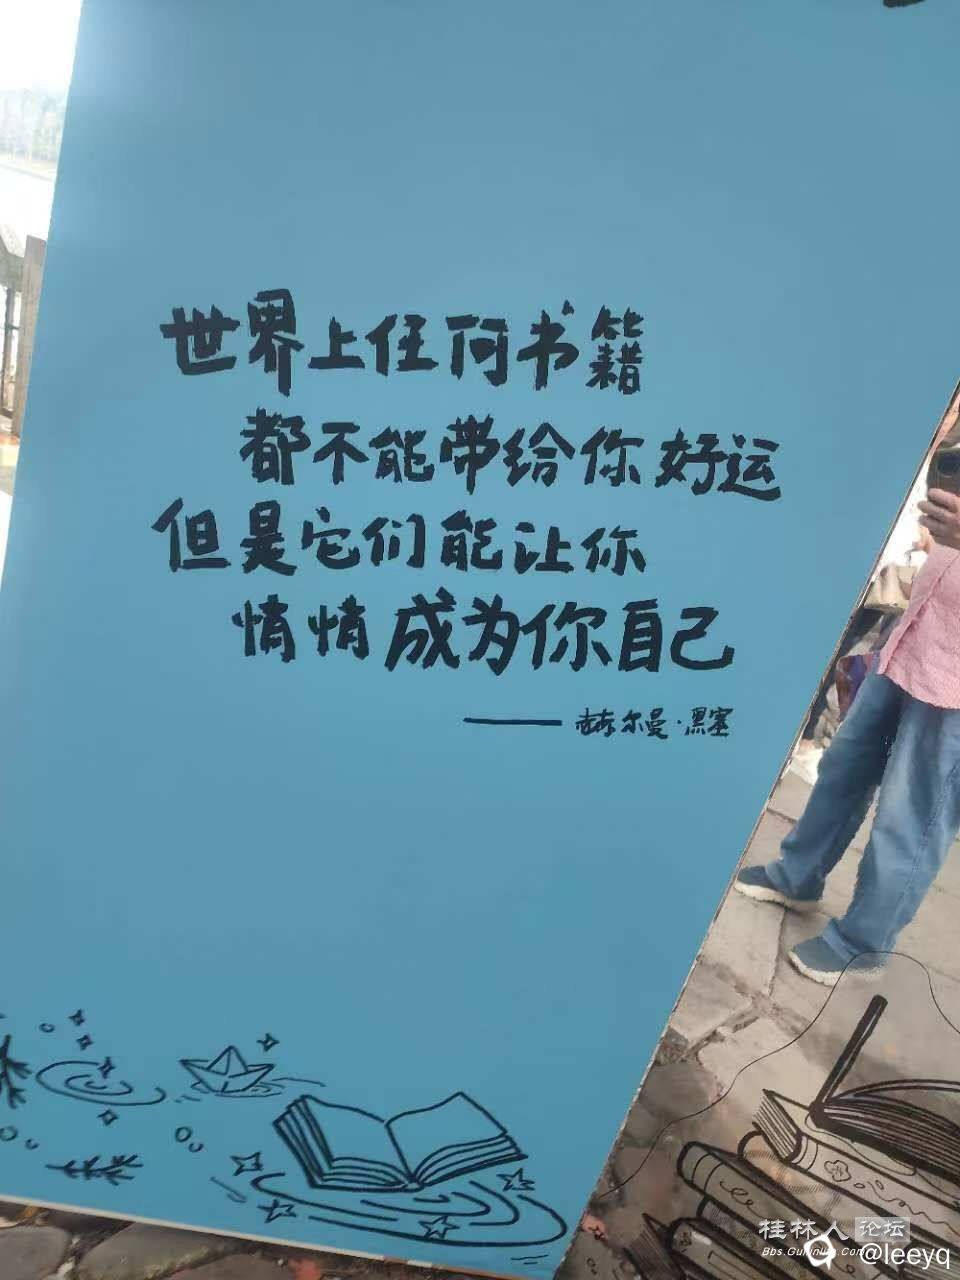 世界上任何书籍
都不能带给你好运
但是它们能让你
悄悄成为你自己
——赫尔曼·黑塞
桂林人论坛
Bbs.Guilinlife.Com
@leeyq